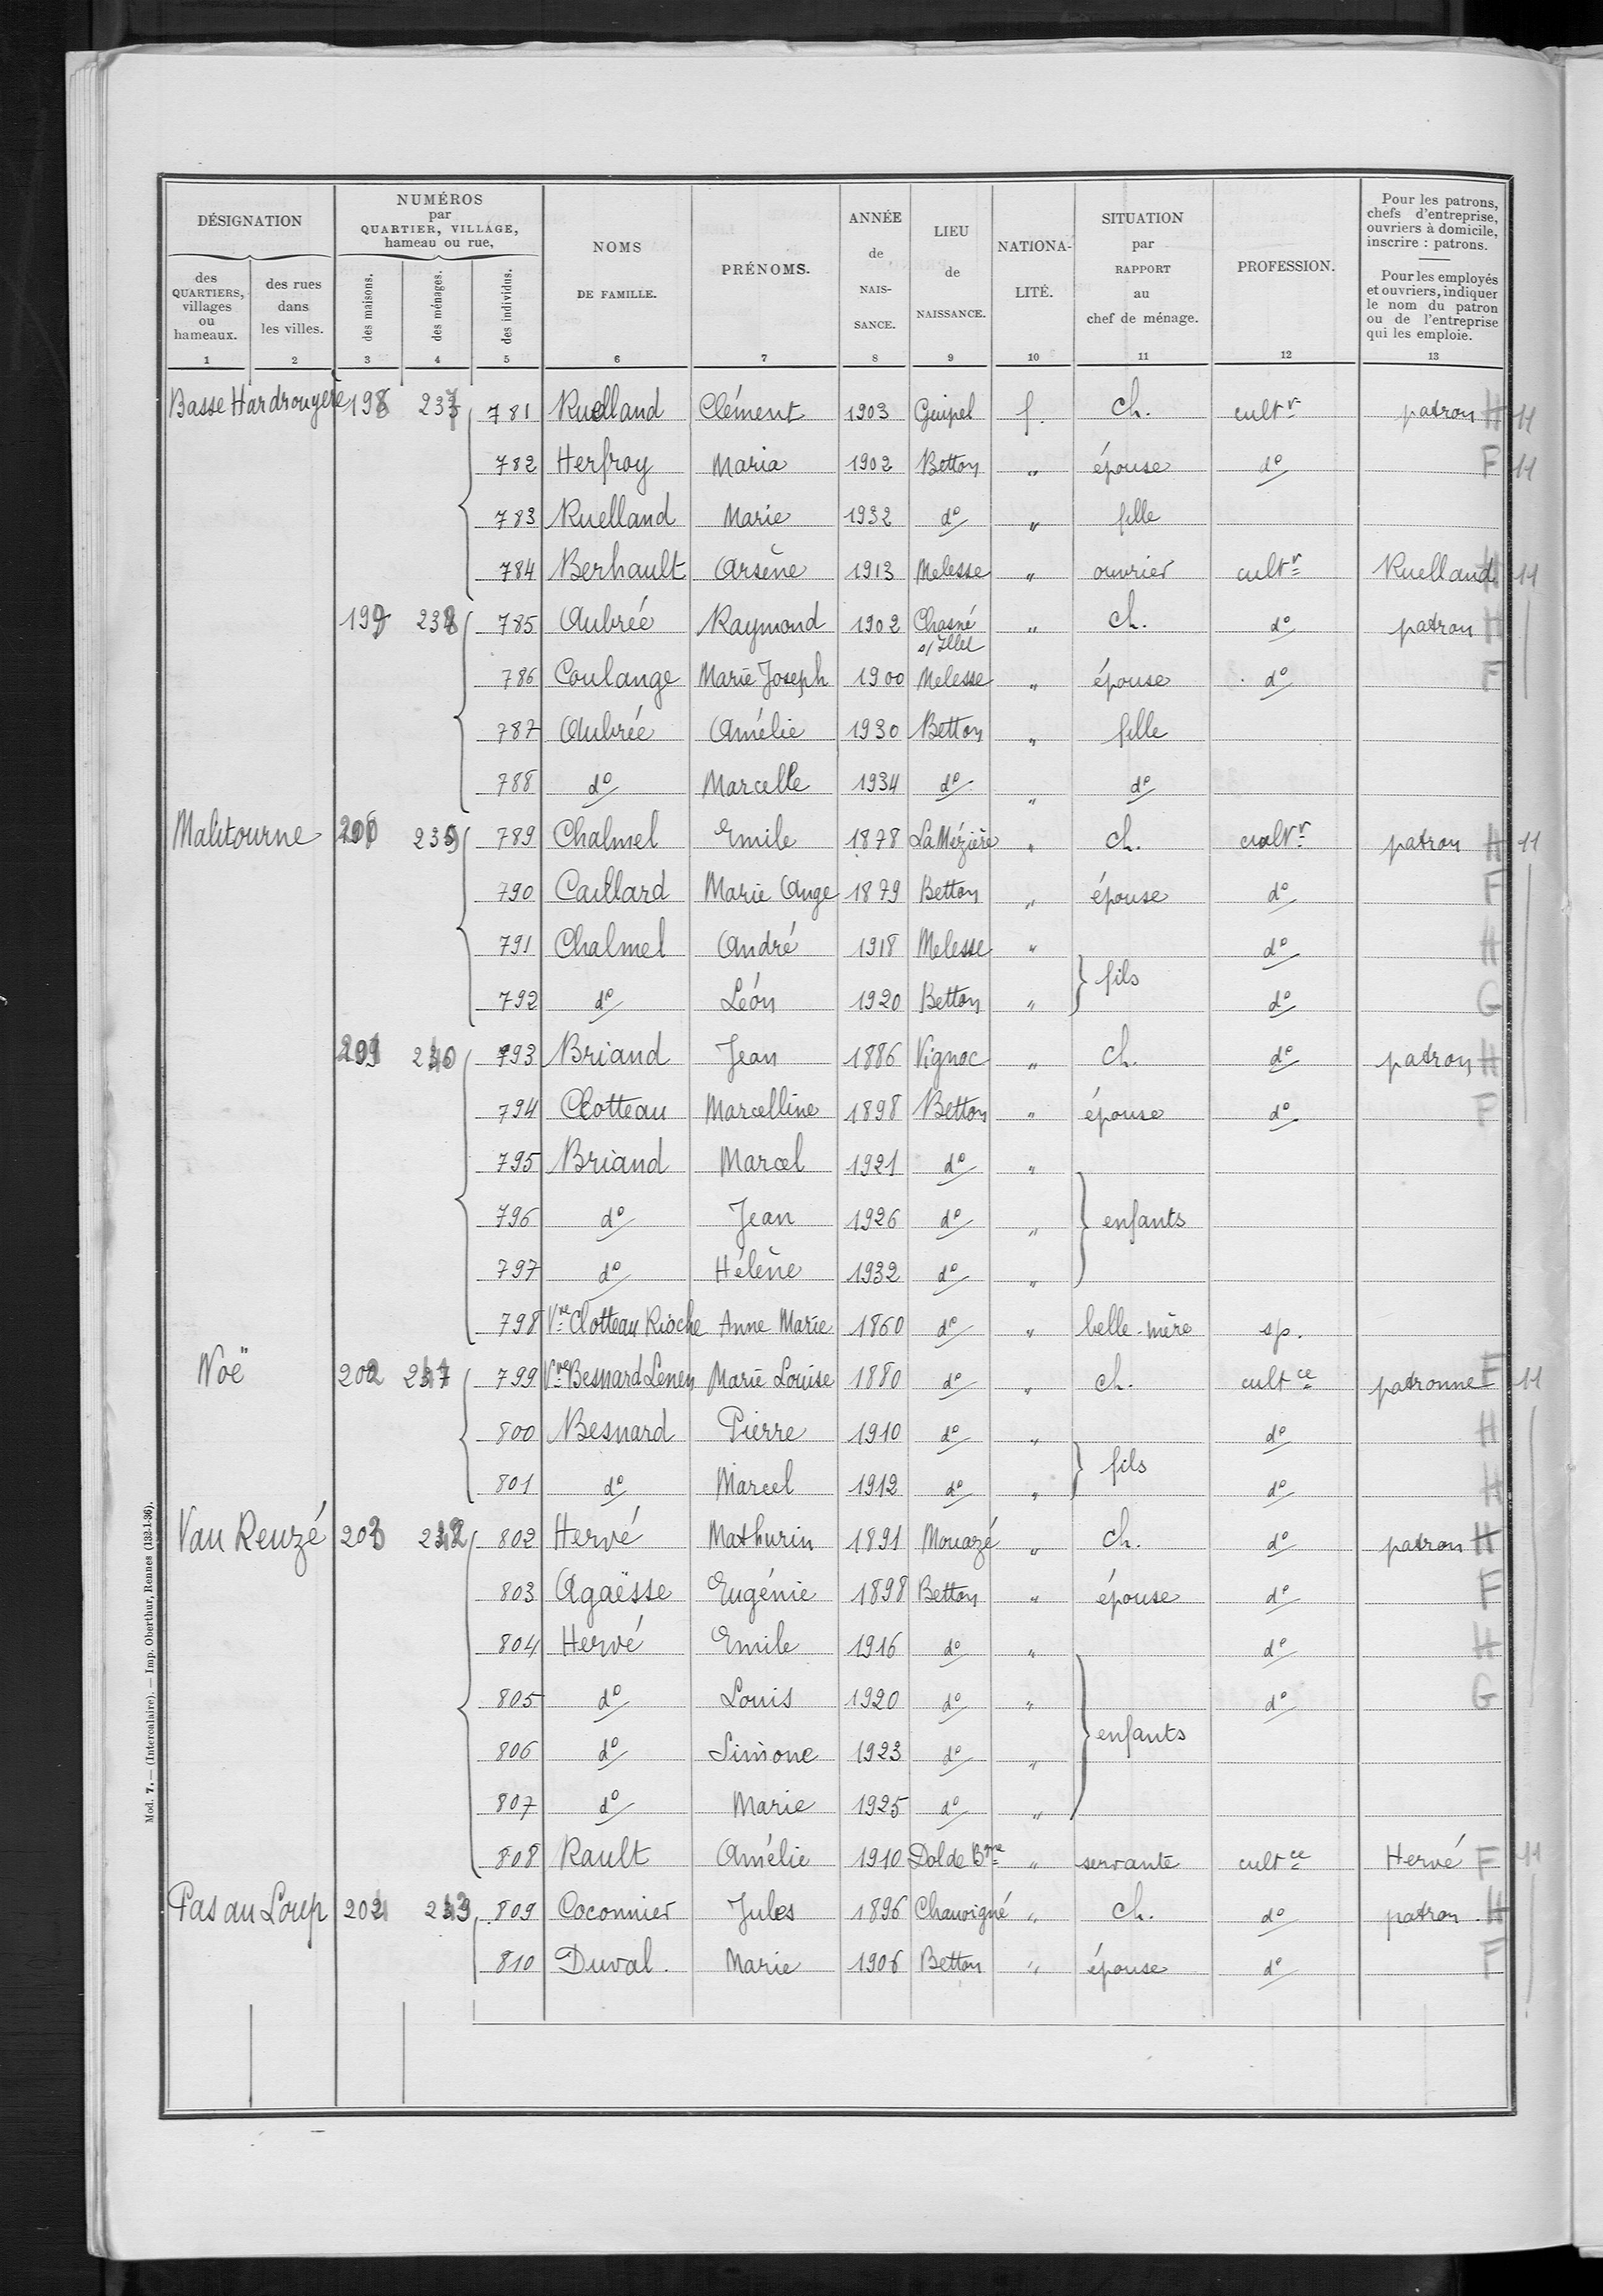 DÉSIGNATION
des QUARTIERS, villages ou hameaux.
des rues dans les villes.
NUMÉROS par QUARTIER, VILLAGE, hameau ou rue,
des maisons.
des ménages.
des individus.
NOMS DE FAMILLE.
PRÉNOMS.
ANNÉE de NAIS-SANCE.
LIEU de NAISSANCE.
NATIONA-LITÉ.
SITUATION par RAPPORT au chef de ménage.
PROFESSION.
Pour les patrons, chefs d'entreprise, ouvriers à domicile, inscrire : patrons.
Pour les employés et ouvriers, indiquer le nom du patron ou de l'entreprise qui les emploie.
1 2 3 4 5 6 7 8 9 10 11 12 13
Basse Hardrouyère 198 237 781 Ruelland Clément 1903 Guipel f. ch. cultr patron H 11
782 Herfroy Maria 1902 Betton " épouse do F 11
783 Ruelland Marie 1932 do " fille
784 Berhault Arsène 1913 Melesse " ouvrier cultr Ruelland H 11
199 238 785 Aubrée Raymond 1902 Chasné s/ Illet " ch. do patron H
786 Coulange Marie Joseph 1900 Melesse " épouse do F
787 Aubrée Amélie 1930 Betton " fille
788 do Marcelle 1934 do " do
Malitourne 200 239 789 Chalmel Emile 1878 La Mézière " ch. cultr patron H 11
790 Caillard Marie Ange 1879 Betton " épouse do F
791 Chalmel André 1918 Melesse " do H
fils
792 do Léon 1920 Betton " do G
201 240 793 Briand Jean 1886 Vignoc " ch. do patron H
794 Clotteau Marcelline 1898 Betton " épouse do F
795 Briand Marcel 1921 do "
796 do Jean 1926 do " enfants
797 do Hélène 1932 do "
798 Vve Clotteau Rioche Anne Marie 1860 do " belle-mère sp.
Noë 202 241 799 Vve Besnard Lenen Marie Louise 1880 do " ch. cultce patronne F 11
800 Besnard Pierre 1910 do " do H
fils
801 do Marcel 1912 do " do H
Vau Reuzé 203 242 802 Hervé Mathurin 1891 Mouazé " ch. do patron H
803 Agaësse Eugénie 1898 Betton " épouse do F
804 Hervé Emile 1916 do " do H
805 do Louis 1920 do " do G
enfants
806 do Simone 1923 do "
807 do Marie 1925 do "
808 Rault Amélie 1910 Dol de Bgne " servante cultce Hervé F 11
Pas au Loup 204 243 809 Coconnier Jules 1896 Chauvigné " ch. do patron H
810 Duval. Marie 1906 Betton " épouse do F
Mod. 7. — (Intercalaire). — Imp. Oberthur, Rennes (132-1-36).